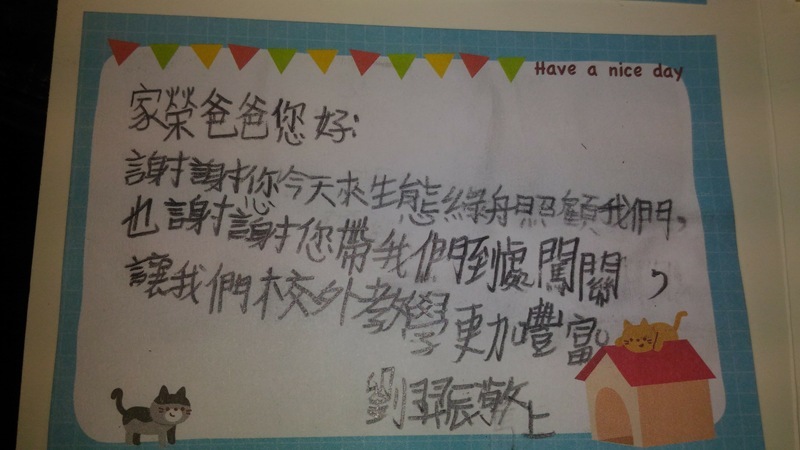 Have a nice day
家榮爸爸您好:
謝謝您今天來生態綠舟照顧我們,
也謝謝您帶我們到處闖關,
讓我們校外教學更加豐富。
劉羿辰敬上